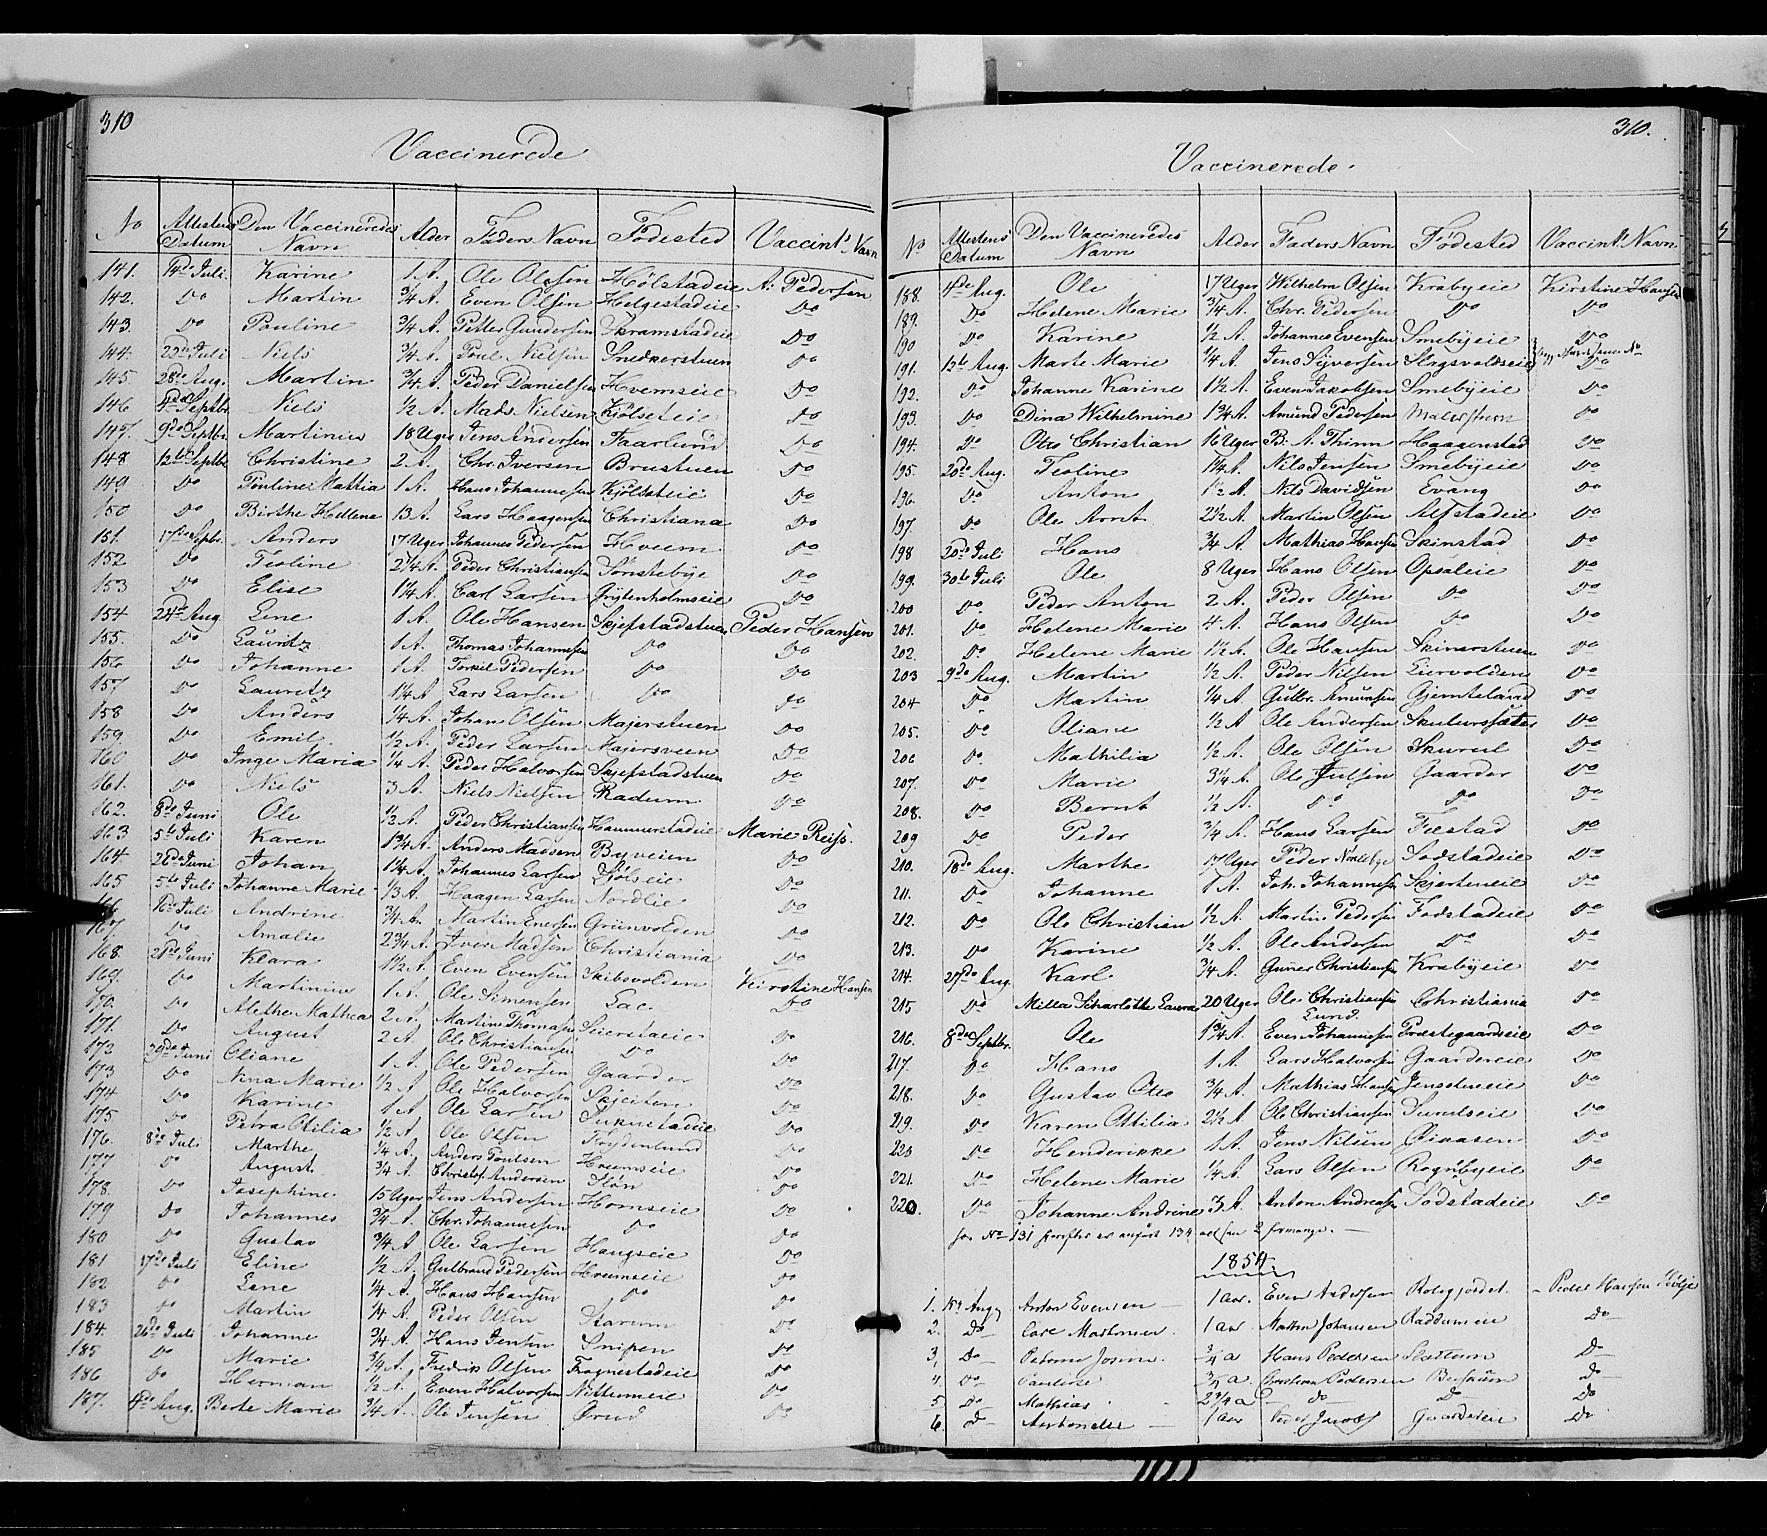 310
Vaccinerede
No Attestens Datum Den Vaccineredes Navn Alder Faders Navn Fødested Vaccints Navn
141. 14de Juli. Karine 1 A. Ole Olsen Hølstadeie A. Pedersen
142. Do Martin 3/4 A. Even Olsen Helgestadeie Do
143. Do Pauline 3/4 A. Petter Gundersen Skramstadeie Do
144. 23de Juli Niels 3/4 A. Poul Nielsen Snedkerstuen Do
145. 28de Aug. Martin 3/4 A. Peder Danielsen Hvemseie Do
146 4de Septbr. Niels 1/2 A. Mads Nielsen Kjølseteie Do
147. 9de Septbr. Martinus 18 Uger Jens Andersen Faarlund Do
148 12te Septbr Christine 2 A. Chr. Iversen Brustuen Do
149 Do Pauline Mathia 1 A. Hans Johannesen Kjølsteie Do
150 Do Birthe Hellene 13 A. Lars Haagensen Christiana Do
151. 17de Septbr. Anders 17 Uger Johannes Pedersen Hveem Do
152 Do Teoline 2 1/4 A. Peder Christiansen Sønstebye Do
153 Do Elise 1 1/4 A. Carl Larsen Grytenholmseie Do
154 24de Aug. Lene 1 A. Ole Hansen Skjefstadstuen Peder Hansen
155. Do Lauritz 1 A. Thomas Johannesen Do Do
156 Do Johanne 1 A. Torkil Pedersen Do Do
157 Do Lauretz 1 1/4 A Lars Larsen Do Do
158 Do Anders 1/4 A. Johan Olsen Majerstuen Do
159. Do Emil. 1/2 A. Peder Larsen Majersveen Do
160 Do Inge Maria 1/4 A. Peder Halvorsen Skjefstadstuen Do
161. Do Niels 3 A. Niels Nielsen Radum Do
162. 8de Juni Ole 1/2 A. Peder Christiansen Hammerstadeie Marie Reiss.
163 5te Juli Karen 1 3/4 A. Anders Madsen Byveien Do
164 26de Juni Johan 1 1/4 A. Johannes Larsen Do
165 5te Juli Johanne Marie 1/3 A. Haagen Larsen Nordlie Do
166 16de Juli Andrine 3/4 A. Martin Enersen Grünvolden Do
167. Do Amalie 2 3/4 A. Iver Madsen Christiania Do
168. 21de Juni Klara 1 1/2 A. Even Evensen Skibsvolden Kirstine Hansen
169. Do Martinus 1 A. Ole Simensen Lae Do
170. Do Alethe Mathea 2 A. Martin Thomasen Seierstaeie Do
171. Do August 2 A. Ole Christiansen Do Do
172 29de Juni Oliane 1 A. Ole Pedersen Gaarder Do
173 Do Nina Marie 1/2 A. Ole Halvorsen Skjeiten Do
174 Do Karine 1 A Ole Larsen Do
175 Do Petra Otilia 1/2 A Ole Olsen Frydenlund Do
176. 8de Juli Marthe 1/4 A. Anders Poulsen Hvemseie Do
177 Do August 3/4 A. Christof. Andersen Do
178. Do Josephine 15 Uger Jens Andersen Hvemseie Do
179 Do Johannes 3/4 A. Chr. Johannesen Do Do
180 Do Gustav 3/4 A. Ole Larsen Haugseie Do
181 17de Juli Eline 1/2 A. Gulbrand Pedersen Hvemseie Do
182 Do Lene 1/4 A. Hans Hansen Do Do
183 Do Martin 1/4 A. Peder Olsen Starum Do
184. 26de Juli Johanne 3/4 A. Hans Jensen Snipen Do
185 Do Marie 3/4 A. Fredrik Olsen Frognestadeie Do
186 Do Herman 1/2 A. Even Halvorsen Nettumeie Do
187. 4de Aug. Berte Marie 3/4 A. Ole Jensen Ørud Do
310.
Vaccinerede.
No Attestens Datum Den Vaccineredes Navn Alder Faders Navn Fødested Vaccints. Navn
188. 4de Aug. Ole 17 Uger Wilhelm Olsen Krabyeie Kirstine Hansen
189. Do Helene Marie 3/4 A. Chr. Pedersen Do Do
190 Do Karine 1/2 A. Johannes Evensen Smebyeie Do
191. 12te Aug. Marte Marie 1/4 A. Jens Syversen Slogsvoldseie Do
192. Do Johanne Karine 1 1/2 A. Even Jakobsen Smebyeie Do
193. Do Dina Wilhelmine 1 3/4 A. Amund Pedersen Do
194. Do Otto Christian 16 Uger B. A. Thinn Haagenstad Do
195. 20de Aug. Teoline 1 1/4 A. Nils Jensen Smebyeie Do
196. Do Anton 1 1/2 A. Nils Davidsen Evang Do
197 Do Ole Arnt 2 1/2 A. Martin Olsen Alfstadeie Do
198 20de Juli Hans 3/4 A. Mathias Hansen Skinstad Do
199. 30te Juli Ole 8 Uger Hans Olsen Opsaleie Do
200 Do Peder Anton 2 A. Peder Olsen Do Do
201. Do Helene Marie 4 A. Hans Olsen Do Do
202. Do Helene Marie 1 1/2 A. Ole Hansen Skinerstuen Do
203 9de Aug. Martin 1/2 A. Peder Nilsen Eiervolden Do
204 Do Martin 1/4 A. Gulbr. Amunsen Do
205. Do Oliane 1/2 A. Ole Andersen Do
206 Do Mathilia 1/2 A. Ole Olsen Do
207. Do Marie 3 1/4 A. Ole Julsen Gaarder Do
208. Do Bernt 1/2 A. Do Do Do
209 Do Peder 3/4 A. Hans Larsen Festad Do
210. 18de Aug. Marthe 17 Uger Peder Nordbye Sodstadeie Do
211. Do Johanne 1 A. Joh. Johannesen Do
212. Do Ole Christian 1/2 A. Martin Pedersen Fodstadeie Do
213. Do Karine 1/2 A. Ole Andersen Do Do
214. 27de Aug. Karl 3/4 A. Guner Christiansen Krabyeie Do
215 Do Milla Scharlotte Laura 20 Uger Ole Christiansen Lund. Christiania Do
216. 8de Septbr. Ole 1 3/4 A. Even Johannesen Præstegaardseie Do
217. Do Hans 1 A. Lars Halvorsen Gaardereie Do
218. Do Gustav Otto 3/4 A. Mathias Hansen Jenseteneie Do
219. Do Karen Ottilia 2 1/2 A. Ole Christiansen Sundseie Do
220 Do Henderikke 1 A. Jens Nilsen Do
221. Do Helene Marie 1/4 A. Lars Olsen Rognbyeie Do
220. Do Johanne Andrine 3 A. Anton Andreasen Sodstadeie Do
for No 131 2 gange. —
1854
1. Aug Anton Evensen — 1 aar. Even Andersen Rotegjordet. – Peder Hansen
2. Do Carl Martinius 1 aar Morten Johansen Raddumeie Do
3, Do 3/4 a Hans Pedersen Do
4 Do Pauline 3/4 a. Christian Pedersen Do
5 Do Mathias 2 3/4 a Do Do Do
6. Do 1 aar Gaardereie Do